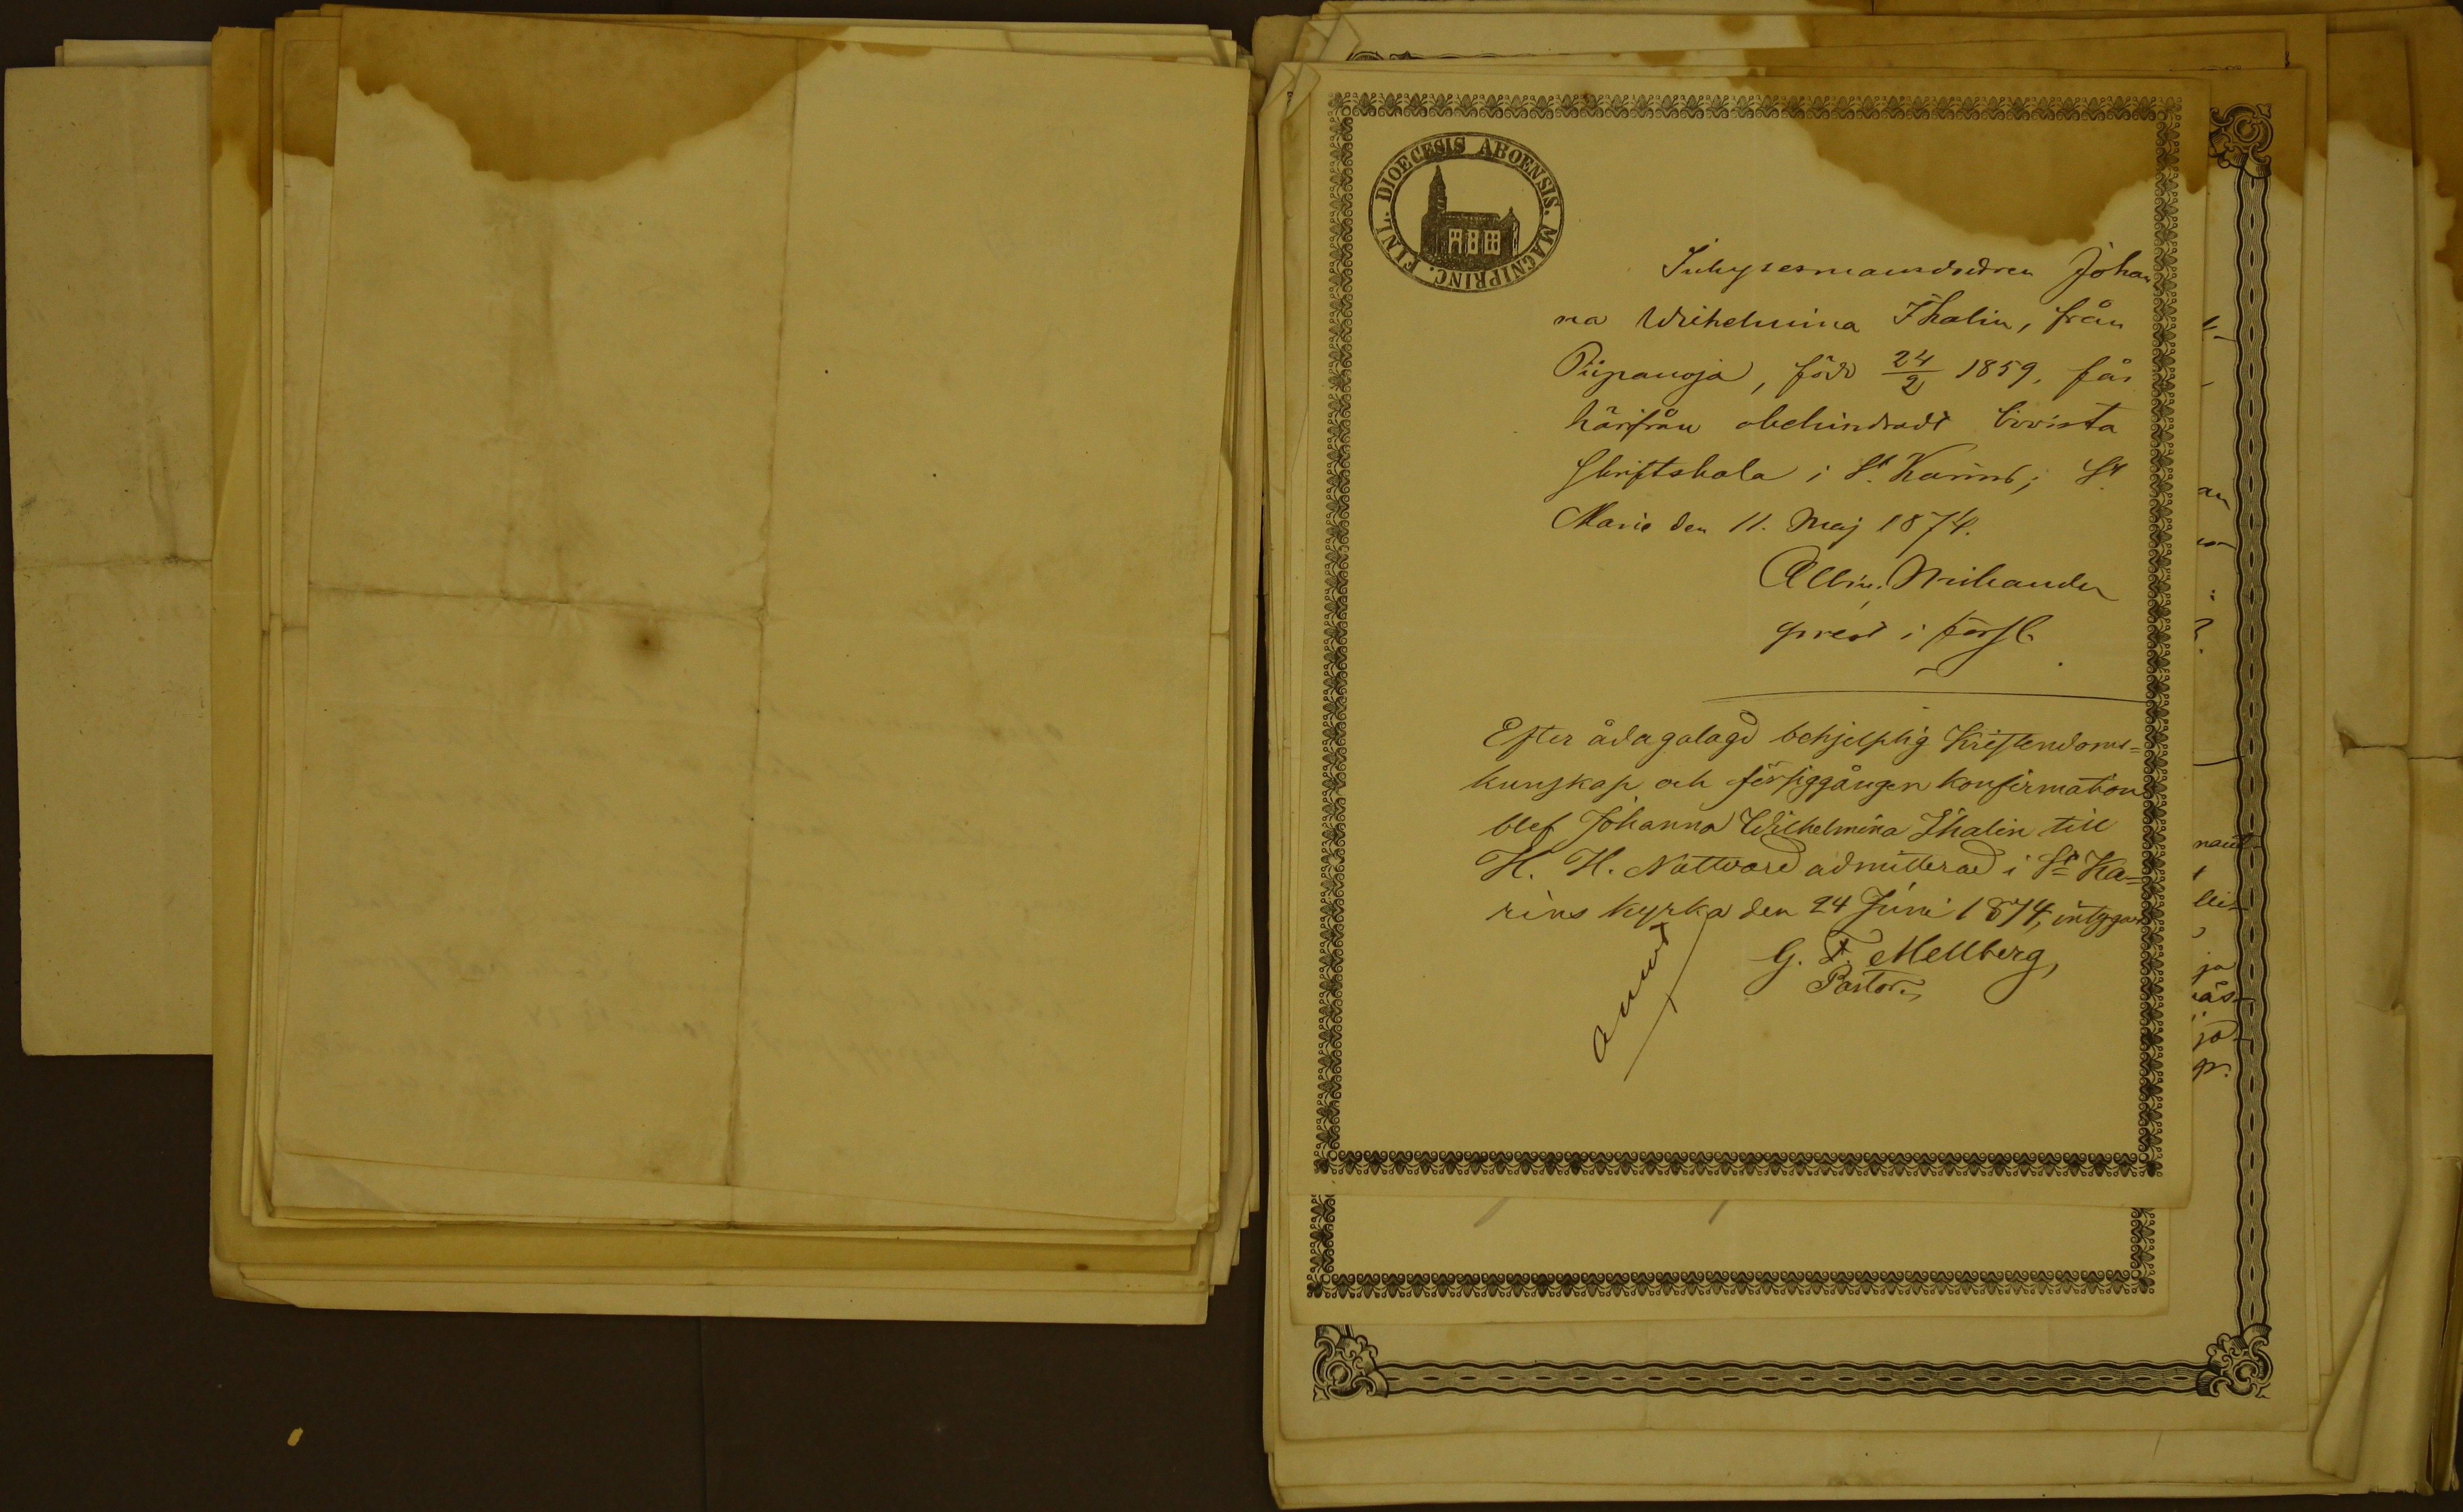 DIOECESIS ABOENSIS. MAGNIPRINC. FINL.
Inhysesmansdodren Johan
na Wilhelmina Thalin, från
Piipanoja, född 24/2 1859, får
härifrån obehindradt bivista
skriftskola i St. Karins; St.
Marie den 11. Maj 1874.
Albin
prest i förs.
Efter ådagalagd behjelplig Kristendoms=
kunskap och försiggången konfirmation
blef Johanna Wilhelmina Thalin till
H. H. Nattvard admitterad i St. Ka=
rins kyrka den 24 Juni 1874, intygar
G. F. Mellberg,
Pastor.